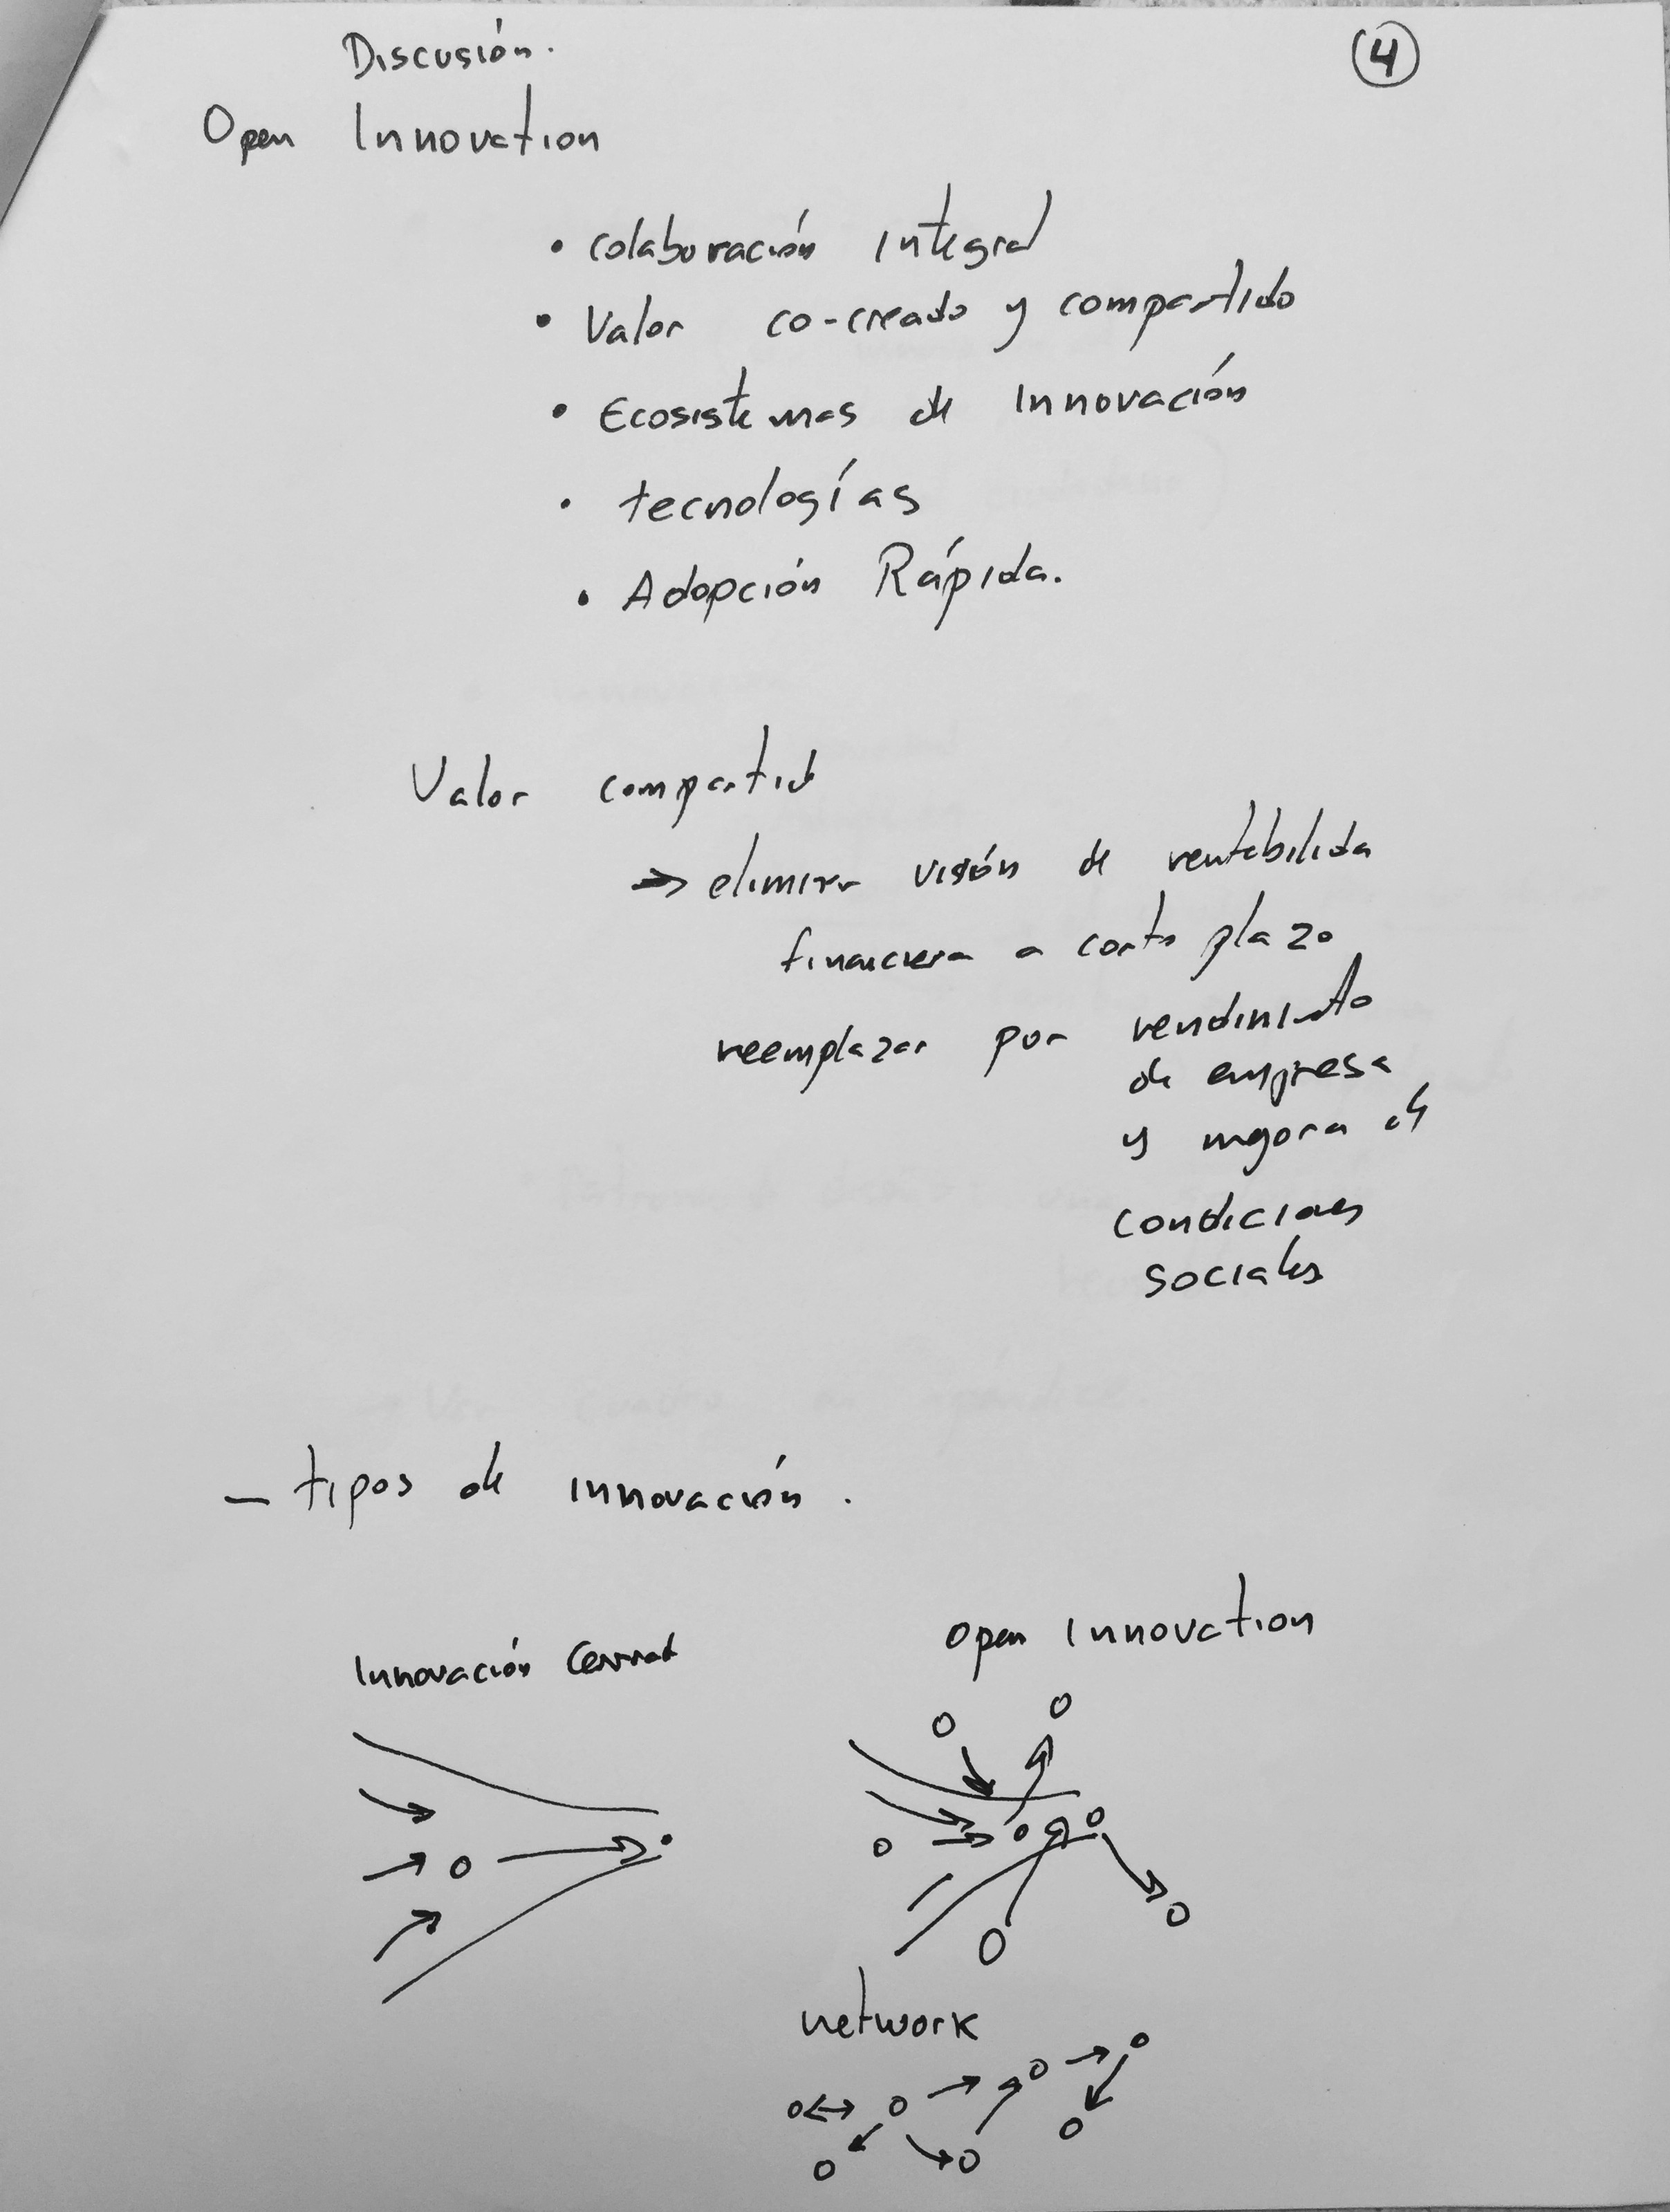 Discusión.
4
Open Innovation
• Colaboración Integral
• Valor co-creado y compartido
• Ecosistemas de Innovación
• tecnologías
• Adopción Rápida.
Valor compartid
→ elimirr visión de rentabilida
financiera a corto plazo
reemplazar por rendimiento
de empresa
y mejora de
condiciones
sociales
- tipos de innovación.
Innovación Cerrad
Open Innovation
network